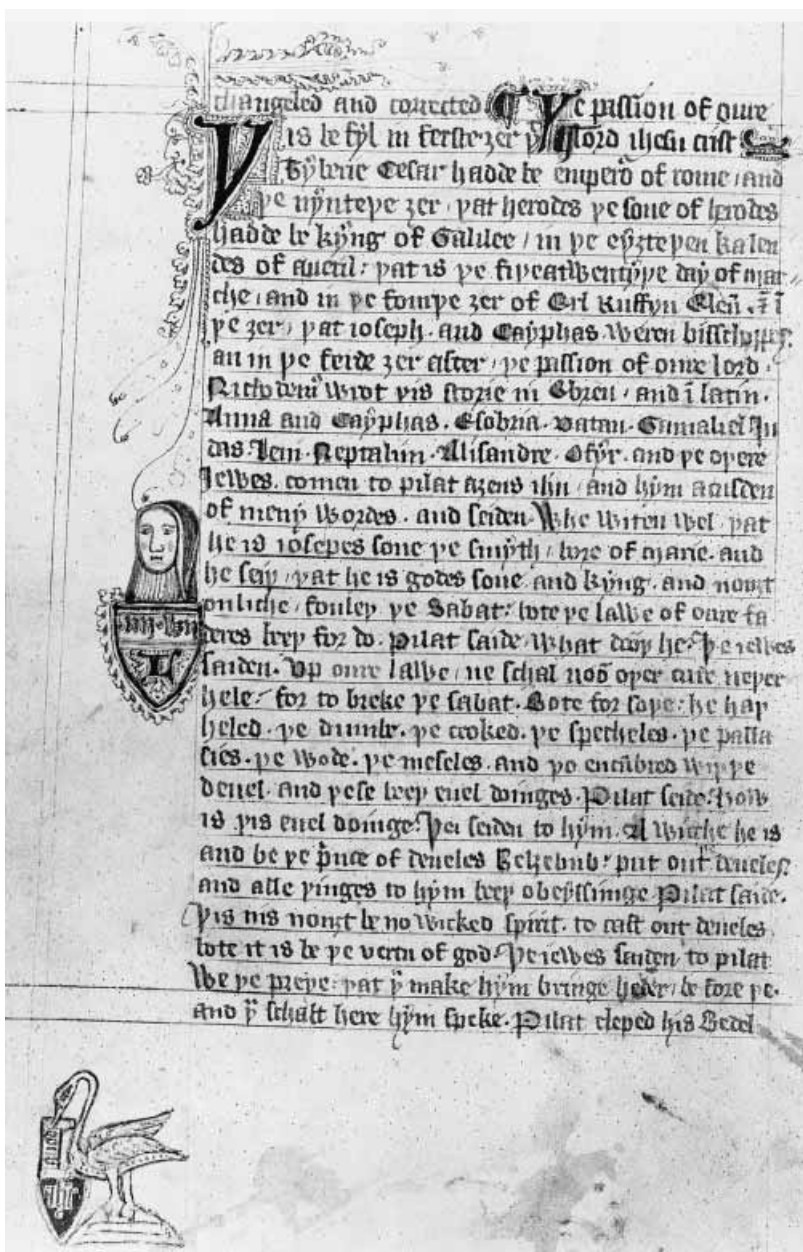 changeled and corrected ¶ Þe passion of oure
Þis be fyl in ferste ȝer þͭ lord ihesu crist
Tyberie Cesar hadde be emperoͬ of rome / and
þe nynteþe ȝer / þat herodes þe sone of herodes
hadde be kyng of Galilee / in þe eyȝteþen kalen
des of aueril: þat is þe fiue & twentyþe day of mar
che / and in þe fourþe ȝer of Erl Ruffyn
þe ȝer / þat ioseph. and Cayphas weren bisschopes.
an in þe ferde ȝer after / þe passion of oure lord.
Nichodemꝰ wrot þis storie in Ebreu / and ī latin.
Anna and Cayphas. Sobria. Datan. Gamaliel Iu
das. Leui. Neptalim. Alisandre. and þe oþere
Iewes. comen to pilat aȝens ihu / and hym acusden
of meny wordes. and seiden. Whe witen wel. þat
he is iosepes sone þe smyth / bore of marie. and
he seiþ / þat he is godes sone and kyng. and nouȝt
onliche / fouleþ þe Sabat: bote þe lawe of oure fa
deres keeþ for do. Pilat saide. What doþ he. Þe iewes
saiden. Vp oure lawe / ne schal noō oþer cure neþer
hele / for to breke þe sabat. Bote for soþe: he haþ
heled. þe dumbe. þe croked. þe specheles. þe palla
sies. þe wode. þe meseles. and þo encūbred wiþ þe
deuel. and þese beeþ euel doinges. Pilat seide. How
is þis euel doinge. Þei seiden to hym. A wicche he is
and be þe p̄nce of deueles Belzebub: put out deueles
and alle þinges to hym beeþ obeyssinge Pilat saide.
Þis nis nouȝt be no wicked spirit. to cast out deueles
bote it is be þe vertu of god. Þe iewes saiden to pilat
We þe preye: þat þͧ make hym bringe heder / be fore þe.
and þͧ schalt here hym speke. Pilat cleped his Bedel